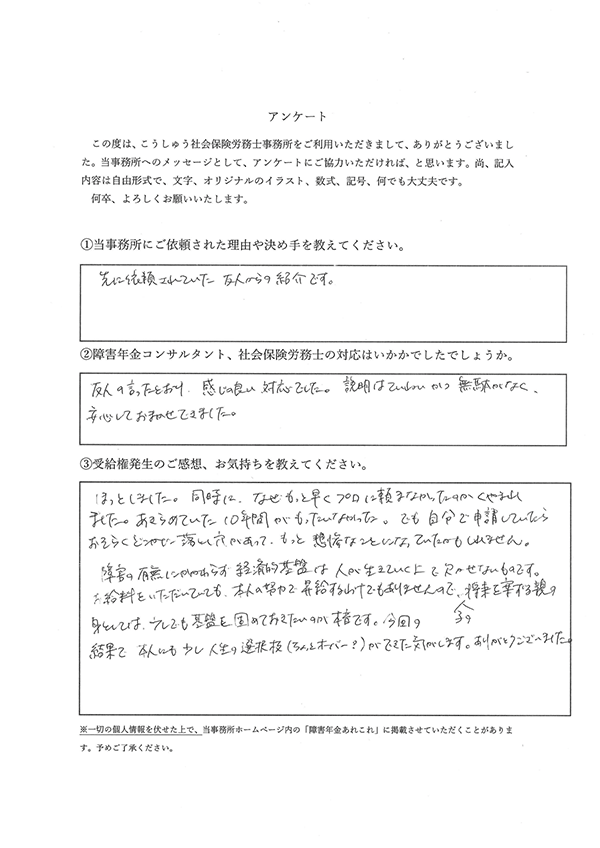 アンケート
この度は、こうしゅう社会保険労務士事務所をご利用いただきまして、ありがとうございまし
た。当事務所へのメッセージとして、アンケートにご協力いただければ、と思います。尚、記入
内容は自由形式で、文字、オリジナルのイラスト、数式、記号、何でも大丈夫です。
何卒、よろしくお願いいたします。
①当事務所にご依頼された理由や決め手を教えてください。
先に依頼されていた友人からの紹介です。
②障害年金コンサルタント、社会保険労務士の対応はいかかでしたでしょうか。
友人の言ったとおり、感じの良い対応でした。説明はていねいかつ無駄がなく、
安心しておまかせできました。
③受給権発生のご感想、お気持ちを教えてください。
ほっとしました。同時に、なぜもっと早くプロに頼まなかったのかくやまれ
ました。あきらめていた10年間がもったいなかった。でも自分で申請していたら
おそらくどこかに落し穴があって、もっと悲惨なことになっていたかもしれません。
障害の有無にかかわらず経済的基盤は人が生きていく上で欠かせないものです。
お給料をいただいていても、本人の努力で昇給するわけでもありませんので、将来を案ずる親の
子の
身としては、少しでも基盤を固めておきたいのが本音です。今回の
結果で本人にも少し人生の選択枝(ちょっとオーバー?)ができた気がします。ありがとうございました。
※一切の個人情報を伏せた上で、当事務所ホームページ内の「障害年金あれこれ」に掲載させていただくことがありま
す。予めご了承ください。